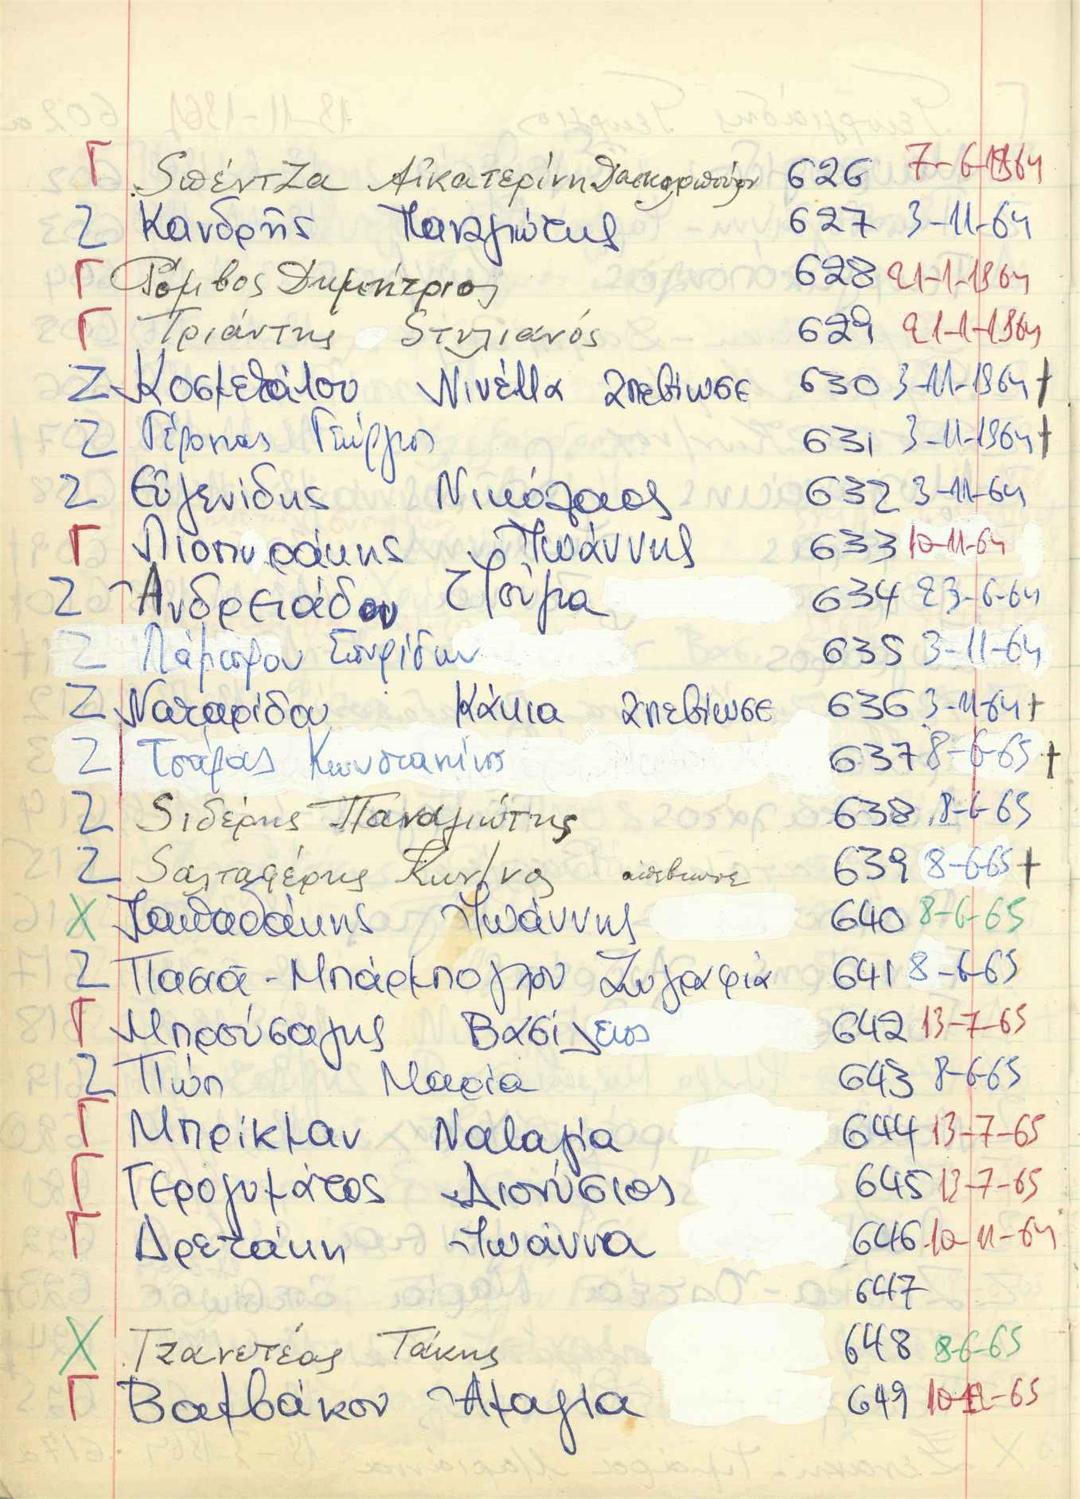 Γ Σπέντζα Αἰκατερίνη 626 7-6-1964
Ζ Κανδρῆς Παναγιώτης 627 3-11-64
Γ Ρόμβος Δημήτριος 628 21-1-1964
Γ Τριάντης Στυλιανός 629 21-1-1964
Ζ Κοσμετάτου Νινέττα ἀπεβίωσε 630 3-11-1964 †
Ζ Γεώργιος 631 3-11-1964 †
Ζ Εὐγενίδης Νικόλαος 632 3-11-64
Γ Πισπιράκης Ἰωάννης 633 10-11-64
Ζ Ἀνδρειάδου 634 23-6-64
Ζ Σπυρίδων 635 3-11-64
Ζ Ναταρίδου Κάκια ἀπεβίωσε 636 3-11-64 †
Ζ Τσάρας Κωνσταντίνος 637 8-6-65 †
Ζ Σιδέρης Παναγιώτης 638 8-6-65
Ζ Σαλταφέρης Κων/νος ἀπεβίωσε 639 8-6-65 †
Χ Ἰωάννης 640 8-6-65
Ζ Πασᾶ-Μπάρμπογλου Ζωγραφιά 641 8-6-65
Γ Μπρούσαλης Βασίλειος 642 13-7-65
Ζ Πώπ Μαρία 643 8-6-65
Γ Μπρίκμαν Ναταλία 644 13-7-65
Γ Γερολυμάτος Διονύσιος 645 13-7-65
Γ Δρετάκη Ἰωάννα 646 10-11-64
647
Χ Τζανετέας Τάκης 648 8-6-65
Γ Βαμβάκου Ἀμαλία 649